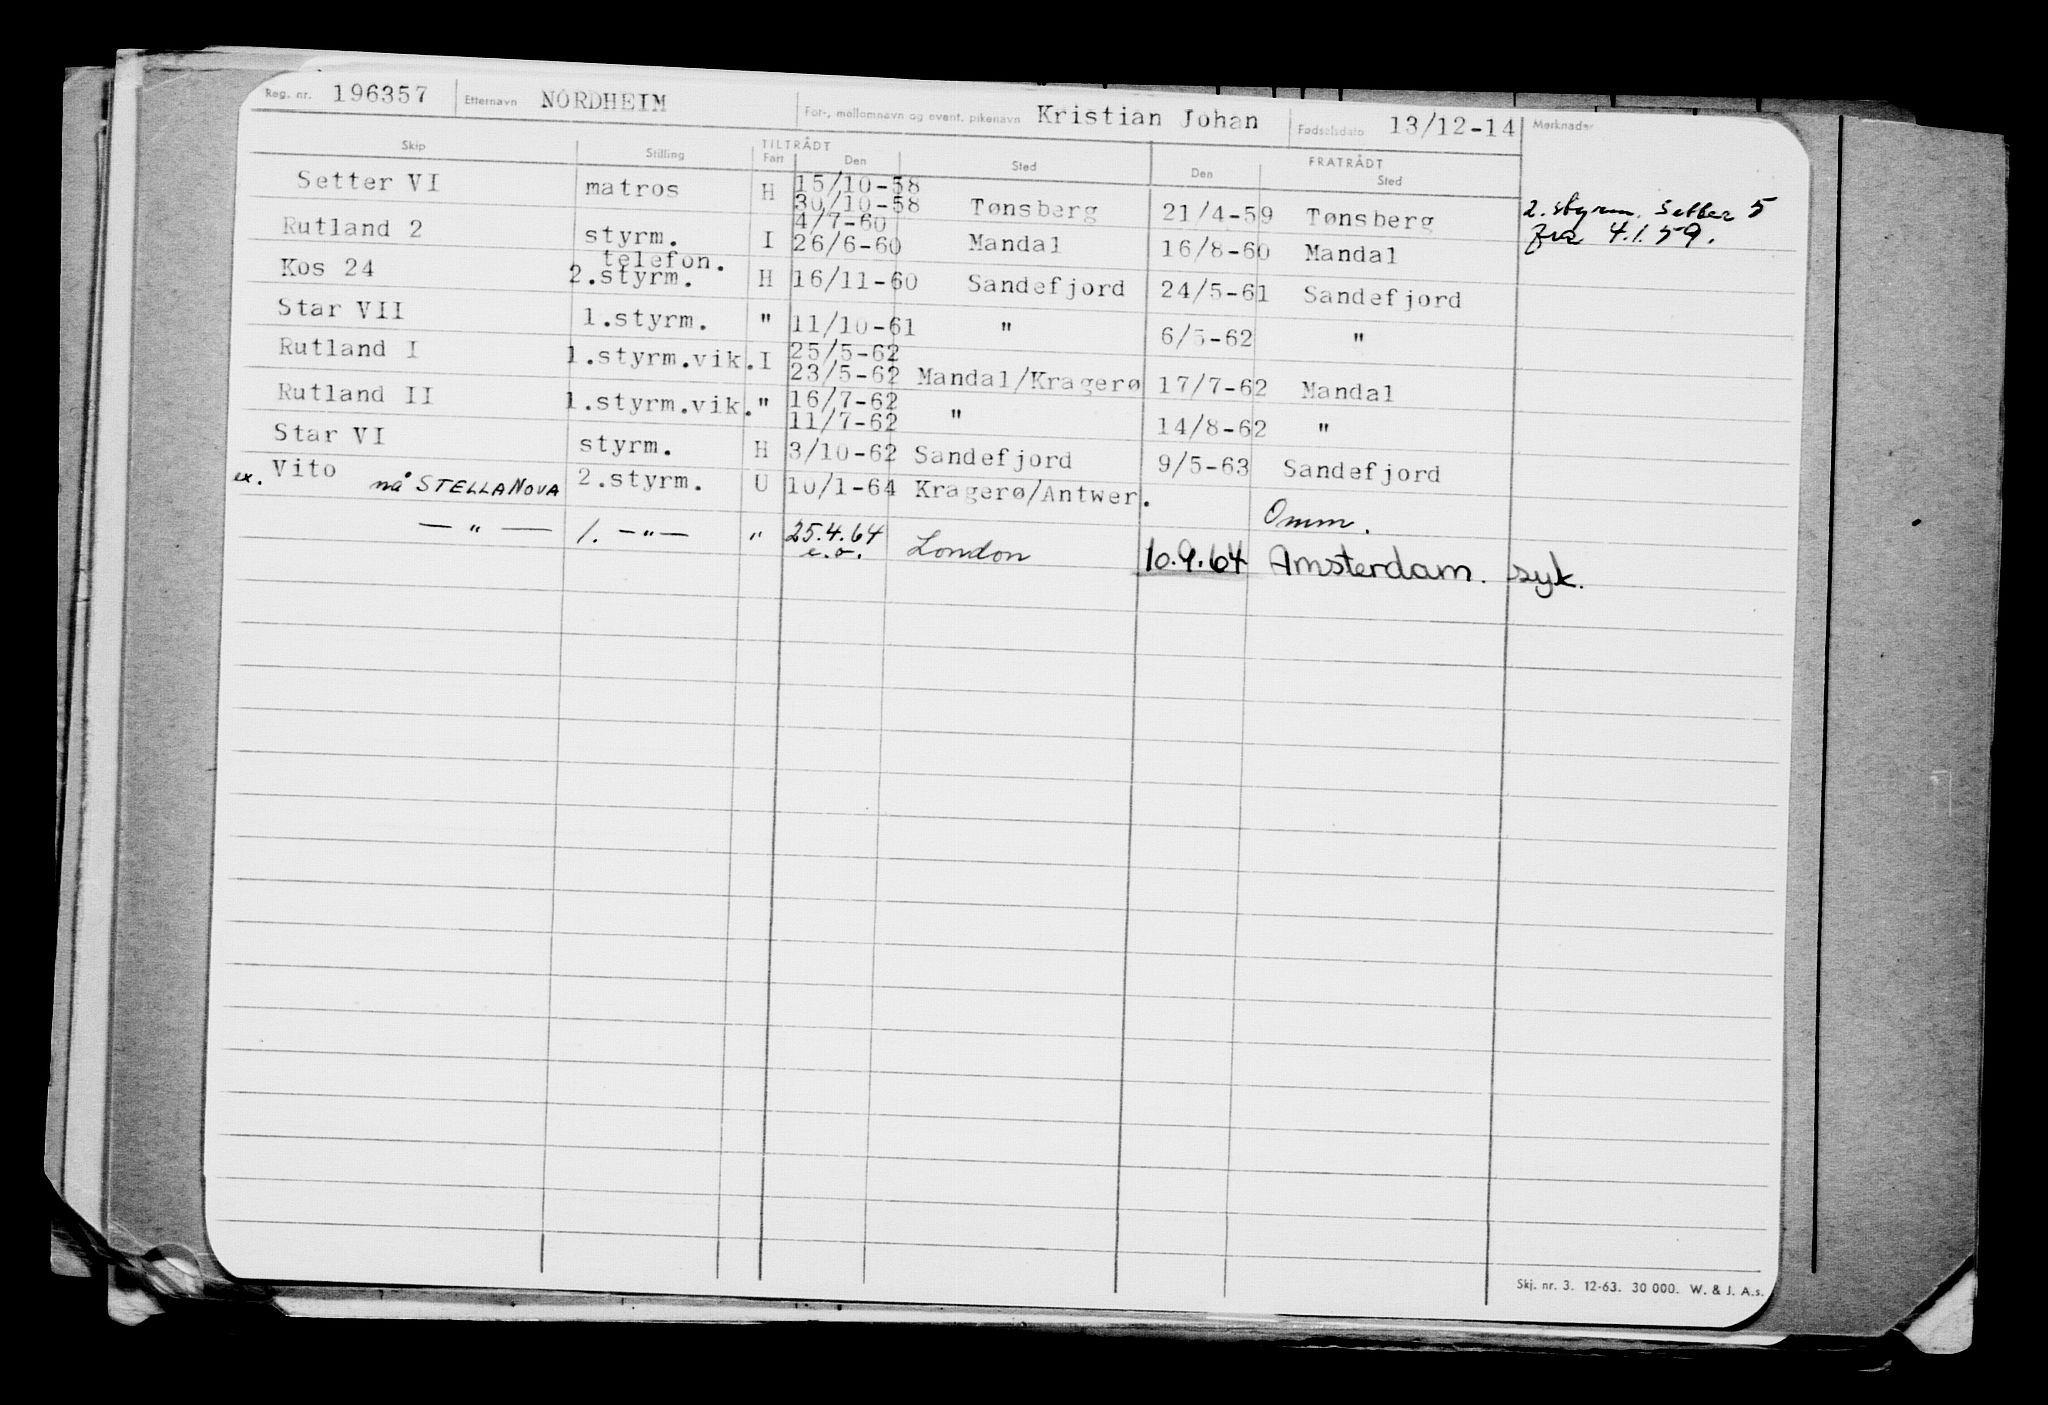 Reg. nr. 196357 Etternavn NORDHEIM For-, mellomnavn og event. pikenavn Kristian Johan Fødselsdato 13/12-14 Merknader
TILTRÅDT FRATRÅDT
Skip Stilling Fart Den Sted Den Sted
15/10-58
Setter VI matros H 30/10-58 Tønsberg 21/4-59 Tønsberg 2. styrm. Setter 5
fra 4.1.59.
4/7-60
Rutland 2 styrm. I 26/6-60 Mandal 16/8-60 Mandal
telefon.
Kos 24 2.styrm. H 16/11-60 Sandefjord 24/5-61 Sandefjord
Star VII 1.styrm. " 11/10-61 " 6/5-62 "
25/5-62
Rutland I 1.styrm.vik. I 23/5-62 Mandal/Kragerø 17/7-62 Mandal
16/7-62
Rutland II 1.styrm.vik. " 11/7-62 " 14/8-62 "
Star VI styrm. H 3/10-62 Sandefjord 9/5-63 Sandefjord
ex. Vito nå STELLANOVA 2.styrm. U 10/1-64 Kragerø/Antwer. Omm.
— " — 1. — " — " 25.4.64 London 10.9.64 Amsterdam. syk.
e.o.
Skj. nr. 3. 12-63. 30 000. W. & J. A.s.